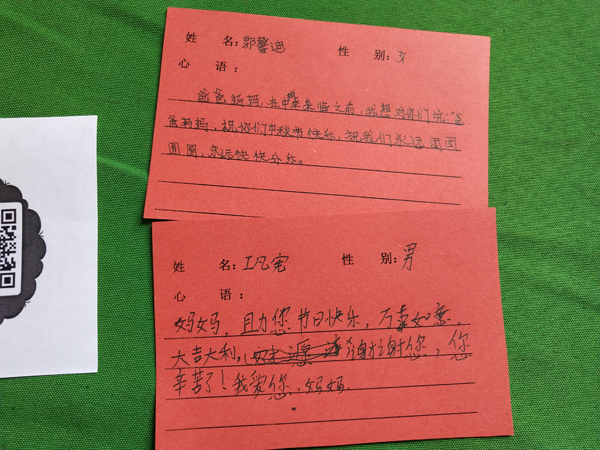 姓 名：郭馨思 性 别：女
心 语：
爸爸妈妈，在中秋来临之前，我想对你们说：“爸
爸妈妈，祝你们中秋节快乐，祝我们永远团团
圆圆，永远快快乐乐。
姓 名：王凡宪 性 别：男
心 语：
妈妈，且力您节日快乐，万事如意，
大吉大利，谢谢您，您
辛苦了！我爱您，妈妈.